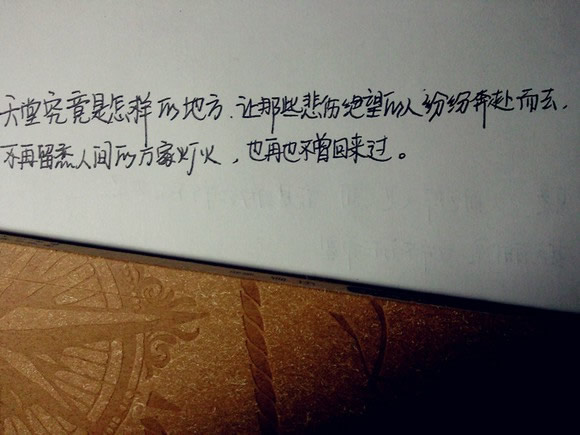 天堂究竟是怎样的地方.让那些悲伤绝望的人纷纷奔赴而去,
不再留恋人间的万家灯火，也再也不曾回来过。